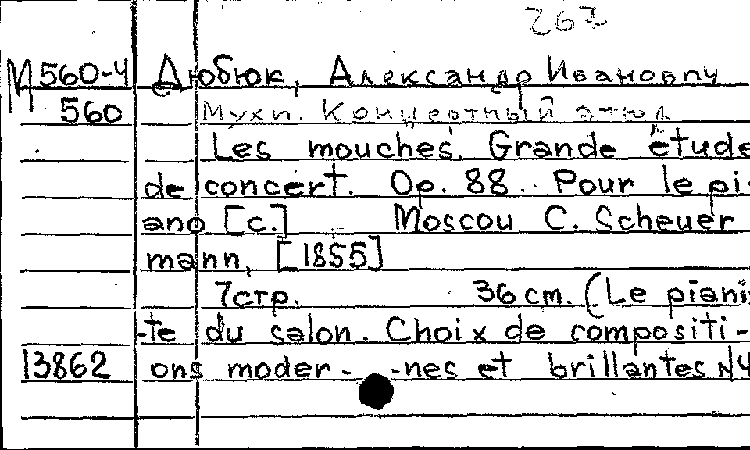 267
М 560-4 Дюбюк, Александр Иванович
560 Мухи. Концертный этюд
Les mouches. Grande étude
de concert. Op. 88.. Pour le pi-
ano [c.] Moscou C. Scheuer
mann, [1855]
7 стр. 36 cm. (Le piani
-te du salon. Choix de compositi-
13862 ons moder- -nes et brillantes N4